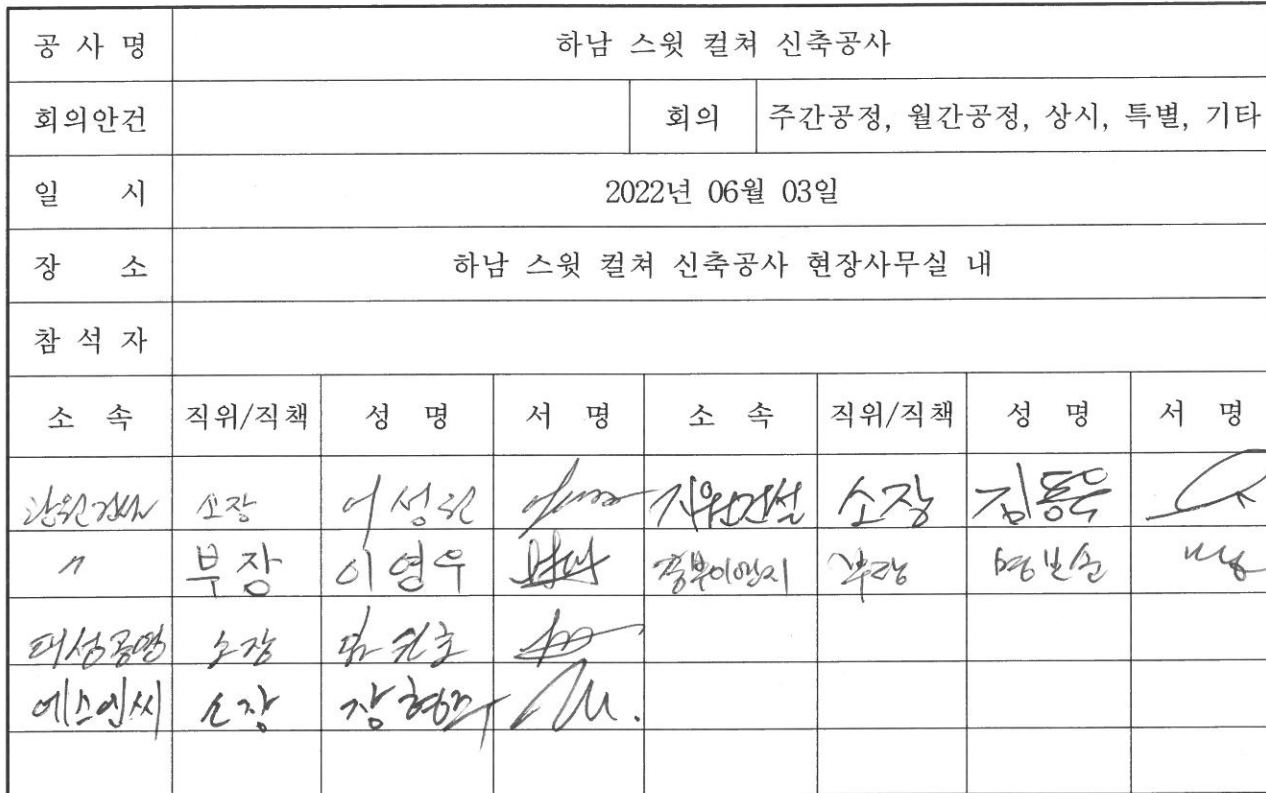 공 사 명 하남 스윗 컬쳐 신축공사
회의안건 회의 주간공정, 월간공정, 상시, 특별, 기타
일 시 2022년 06월 03일
장 소 하남 스윗 컬쳐 신축공사 현장사무실 내
참 석 자
소 속 직위/직책 성 명 서 명 소 속 직위/직책 성 명 서 명
소장 이성원 지원건설 소장 김동욱
〃 부장 이영우 중부이엔지 부장
태성공영 소장
에스엔씨 소장